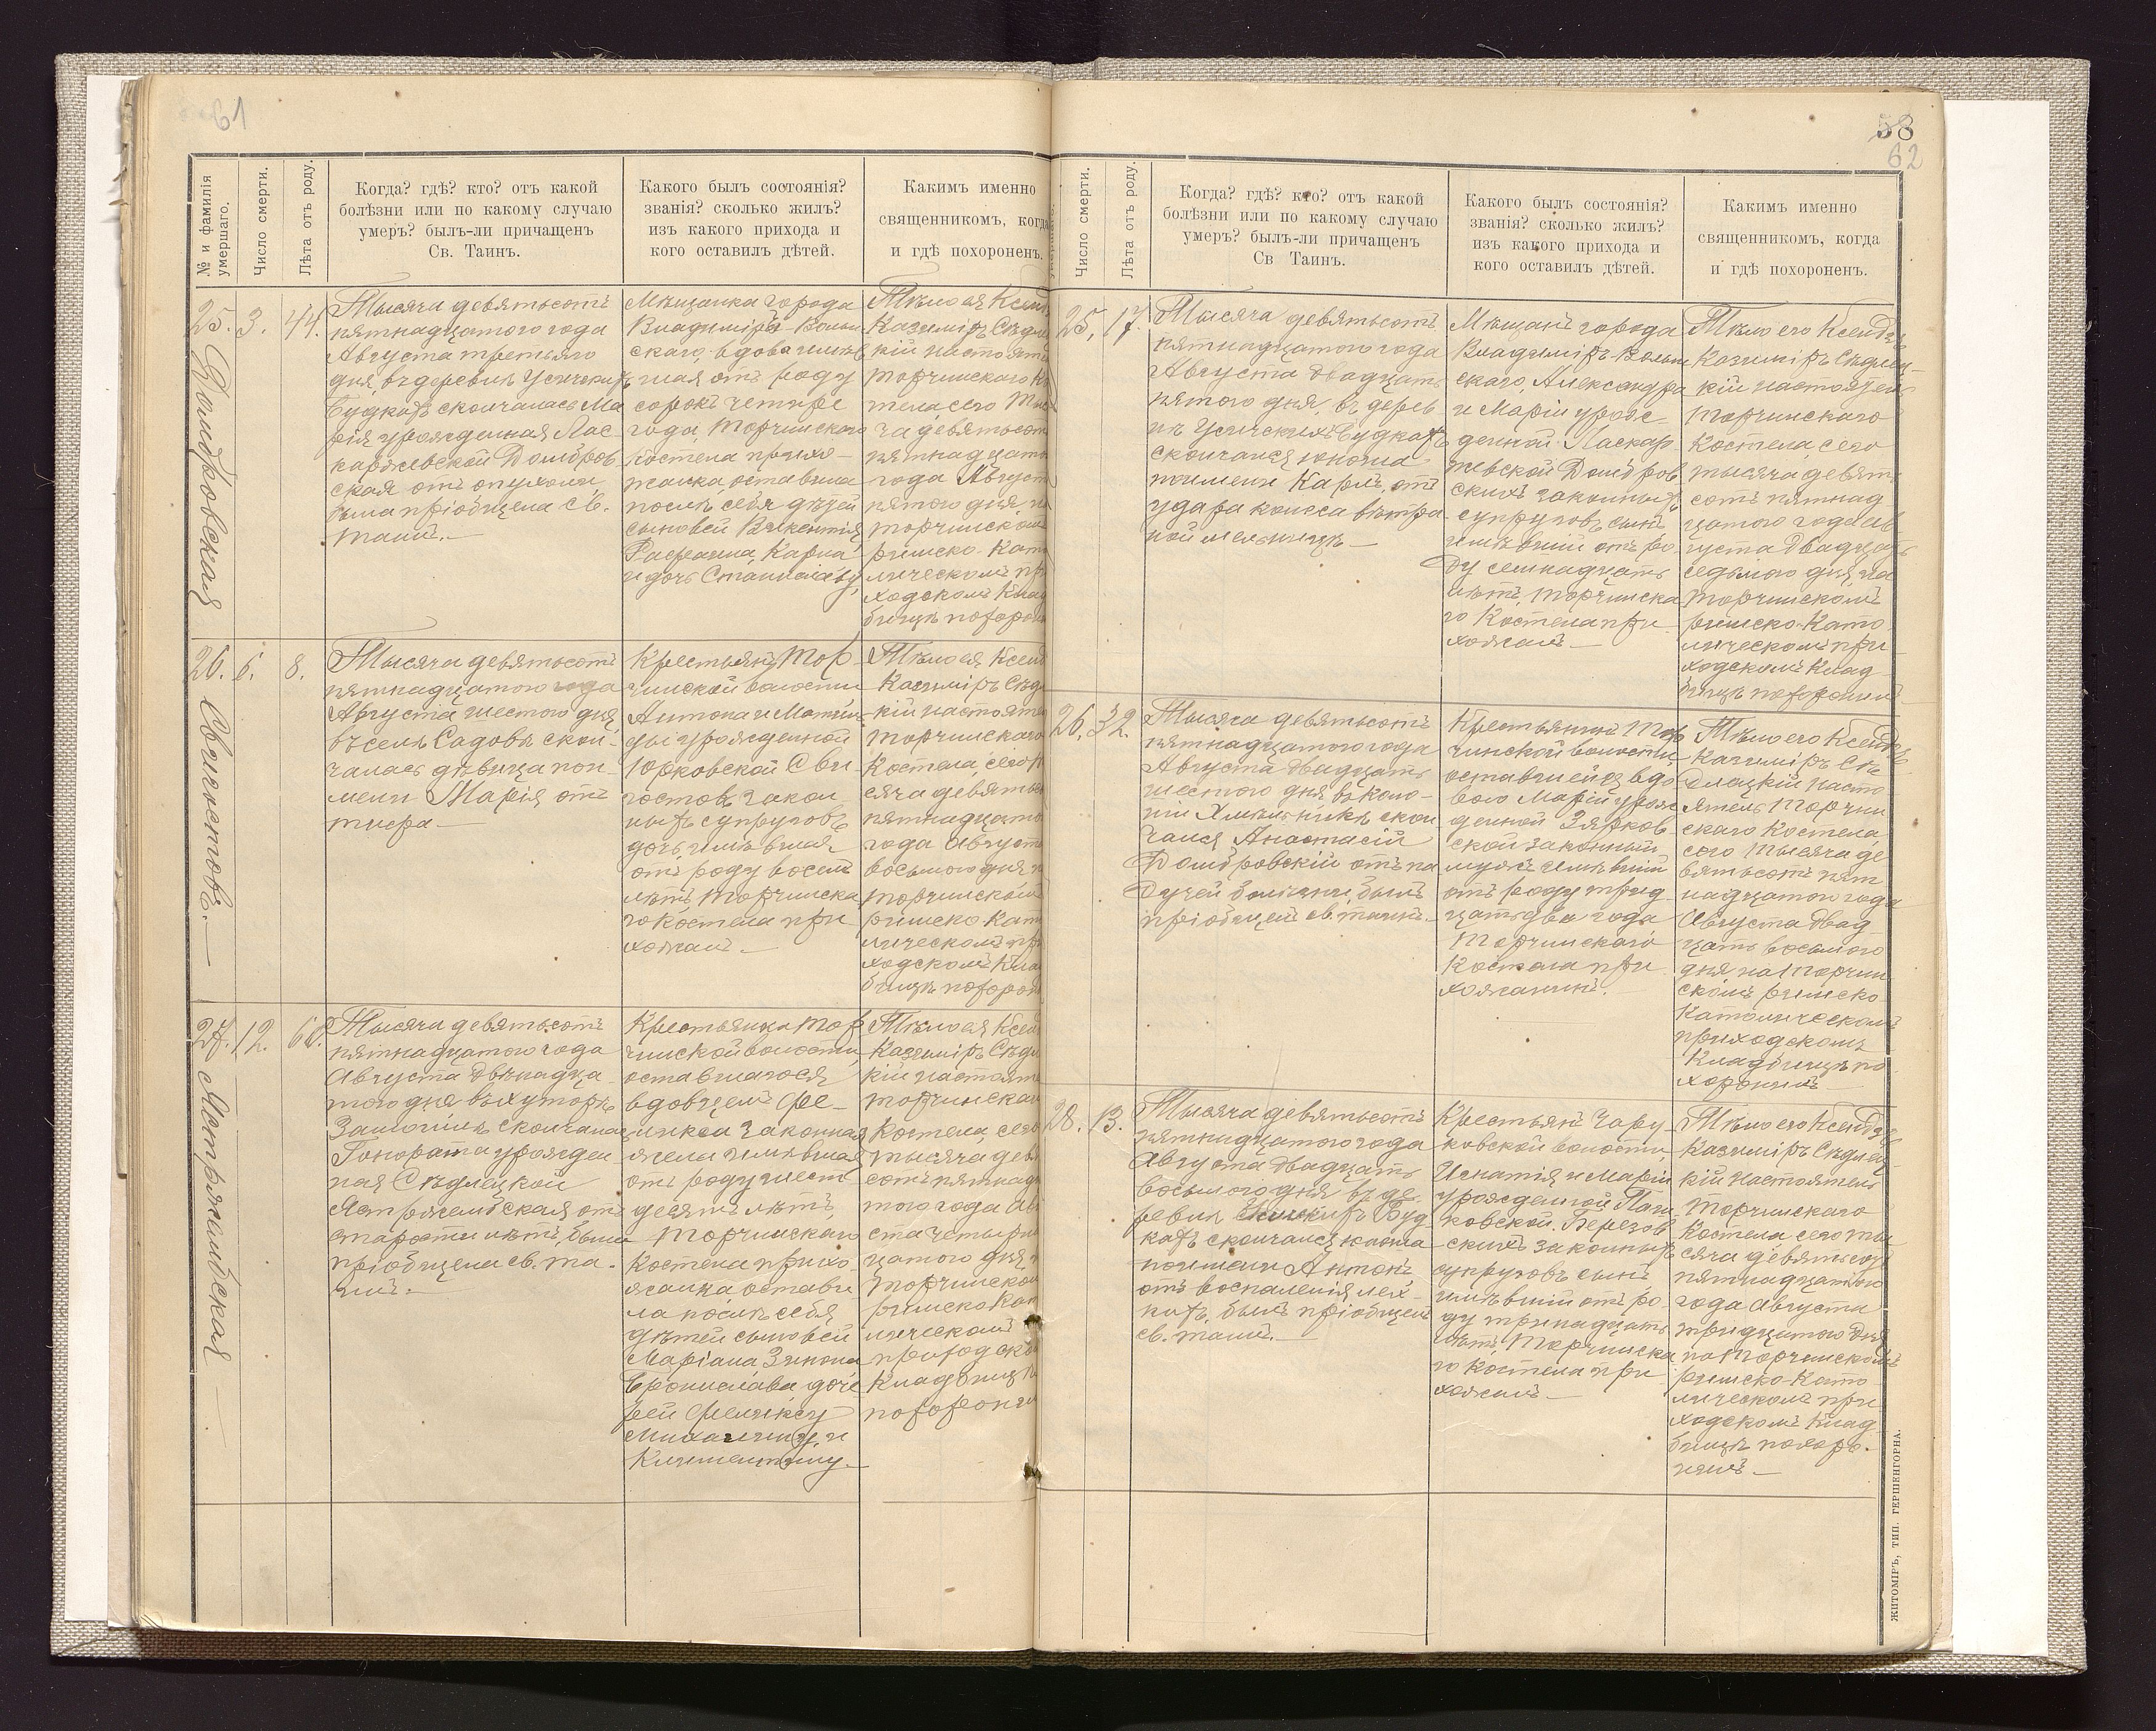 61
№ и фамилія умершаго.
Число смерти.
Лѣта отъ роду.
Когда? гдѣ? кто? отъ какой
болѣзни или по какому случаю
умеръ? былъ-ли причащенъ
Св. Таинъ.
Какого былъ состоянія?
званія? сколько жилъ?
изъ какого прихода и
кого оставилъ дѣтей.
Каким именно
священникомъ, когда
и гдѣ похороненъ.
25.
Домбровская
3.
44.
Тысяча девятьсотъ
пятнадцатого года
Августа третьяго
дня, въ деревнѣ Усичскихъ
Будкахъ скончалась Ма
рія урожденная Лас
каржевской Домбров
ская отъ опухоли
была пріобщена Св.
таинъ.—
Мѣщанка города
Владиміра-Волын
скаго, вдова имѣв
шая отъ роду
сорокъ четыре
года, Торчинскаго
Костела прихо-
жанка, оставила
послѣ себя дѣтей
сыновей Викентія
Рафаила, Карла
и дочь Станиславу,
Тѣло ея Ксенд
Казиміръ Сѣдле
кій настояте
Торчинскаго Ко
стела сего Тыс
ча девятьсот
пятнадцато
года Август
пятого дня, на
Торчинском
римско-Като
лическомъ при
ходскомъ Клад
бищѣ похорон
26.
Свиностовъ.—
6.
8.
Тысяча девятьсотъ
пятнадцатого года
Августа шестого дня
въ селѣ Садовѣ скон-
чалась дѣвица по и-
мени Марія отъ
тифа—
Крестьянъ Тор-
чинской волости
Антона и Матиль
ды урожденной
Юрковской Сви
ностовъ закон
ныхъ супруговъ
дочь, имѣвшая
отъ роду восемь
лѣтъ, Торчинска
го Костела при
хожан.—
Тѣло ея Ксенд
Казиміръ Сѣдл
кій настояте
Торчинскаго
Костела, сего т
сяча девятьс
пятнадцато
года Август
восьмого дня н
Торчинскомъ
римско-Кат
лическомъ пр
ходскомъ Кла
бищѣ похорон
27.
Ястржембская
12.
60.
Тысяча девятьсотъ
пятнадцатого года
Августа двѣнадца
того дня въ хуторѣ
Замогилѣ скончалась
Гонората урожден
ная Сѣдлецкой
Ястржембская отъ
старости лѣтъ, была
пріобщена св. та-
инъ.—
Крестьянка Тор
чинской волости,
оставшагося
вдовцемъ Фе-
ликса законная
жена имѣвшая
отъ роду шесть
десятъ лѣтъ,
Торчинскаго
Костела прихо
жанка остави
ла послѣ себя
дѣтей сыновей
Маріана Зенона
Бронислава, доче
рей Феликсу
Михалину, и
Климентину.—
Тѣло ея Ксен
Казиміръ Сѣдл
кій настояте
Торчинскаг
Костела, сего
тысяча девя
сотъ пятнад
того года Авг
ста четырна
цатого дня н
Торчинском
римско Кат
лическомъ
приходско
Кладбищѣ
похоронен
58
62
Число смерти.
Лѣта отъ роду.
Когда? гдѣ? кто? отъ какой
болѣзни или по какому случаю
умеръ? былъ-ли причащенъ
Св Таинъ.
Какого былъ состоянія?
званія? сколько жилъ?
изъ какого прихода и
кого оставилъ дѣтей.
Каким именно
священникомъ, когда
и гдѣ похороненъ.
25.
17.
Тысяча девятьсотъ
пятнадцатого года
Августа двадцать
пятого дня, въ дерев
нѣ Усичскихъ Будкахъ
скончался юноша
по имени Карлъ, отъ
удара колеса вѣтря
ной мельницѣ—
Мѣщанъ города
Владиміръ-Волын
скаго, Александра
и Маріи урож-
денной Ласкар
жевской Домбров
скихъ законныхъ
супруговъ сынъ
имѣвшій отъ ро
ду семнадцать
лѣтъ, Торчинска
го Костела при
хожан—
Тѣло его Ксендзъ
Казиміръ Сѣдлец-
кій настоятель
Торчинскаго
Костела, сего
тысяча девять
сотъ пятнад
цатого года Ав
густа двадцать
седьмого дня, на
Торчинскомъ
римско-Като
лическомъ при
ходскомъ Клад
бищѣ похоронил
26.
32.
Тысяча девятьсотъ
пятнадцатого года
Августа двадцать
шестого дня въ коло-
ніи Хмѣльникѣ скон
чался Анастасій
Домбровскій отъ па
дучей болѣзни, былъ
пріобщенъ св. таинъ.—
Крестьянинъ Тор
чинской волости,
оставшейся вдо
вою Маріи урож
денной Зярков-
ской законный
мужъ имѣвшій
отъ роду трид
цать два года
Торчинскаго
Костела при
хожанинъ.
Тѣло его Ксендзъ
Казиміръ Сѣ
длецкій насто
ятель Торчин
скаго Костела
сего тысяча де
вятьсотъ пят
надцатого года
Августа двад
цать восьмого
дня на Торчин
скомъ римско
Католическомъ
приходскомъ
Кладбищѣ по
хоронилъ
28.
13.
Тысяча девятьсотъ
пятнадцатого года
Августа двадцать
восьмого дня въ де
ревнѣ Буд
кахъ скончался юноша
по имени Антонъ
отъ воспаленія лех-
кихъ, былъ пріобщенъ
св. таинъ.—
Крестьянъ Чару-
ковской волости,
Игнатія и Маріи
урожденной
ковской Березов
скихъ законныхъ
супруговъ сынъ
имѣвшій отъ ро
ду тринадцать
лѣтъ, Торчинска
го Костела при
хожан—
Тѣло его Ксендзъ
Казиміръ Сѣдлец-
кій настоятель
Торчинскаго
Костела сего ты
сяча девятьсот
пятнадцатого
года Августа
тридцатого дня
на Торчинскомъ
римско-Като
лическомъ при
ходскомъ Клад
бищѣ похоро-
нилъ—
ЖИТОМІРЪ, ТИП. ГЕРШЕНГОРНА.